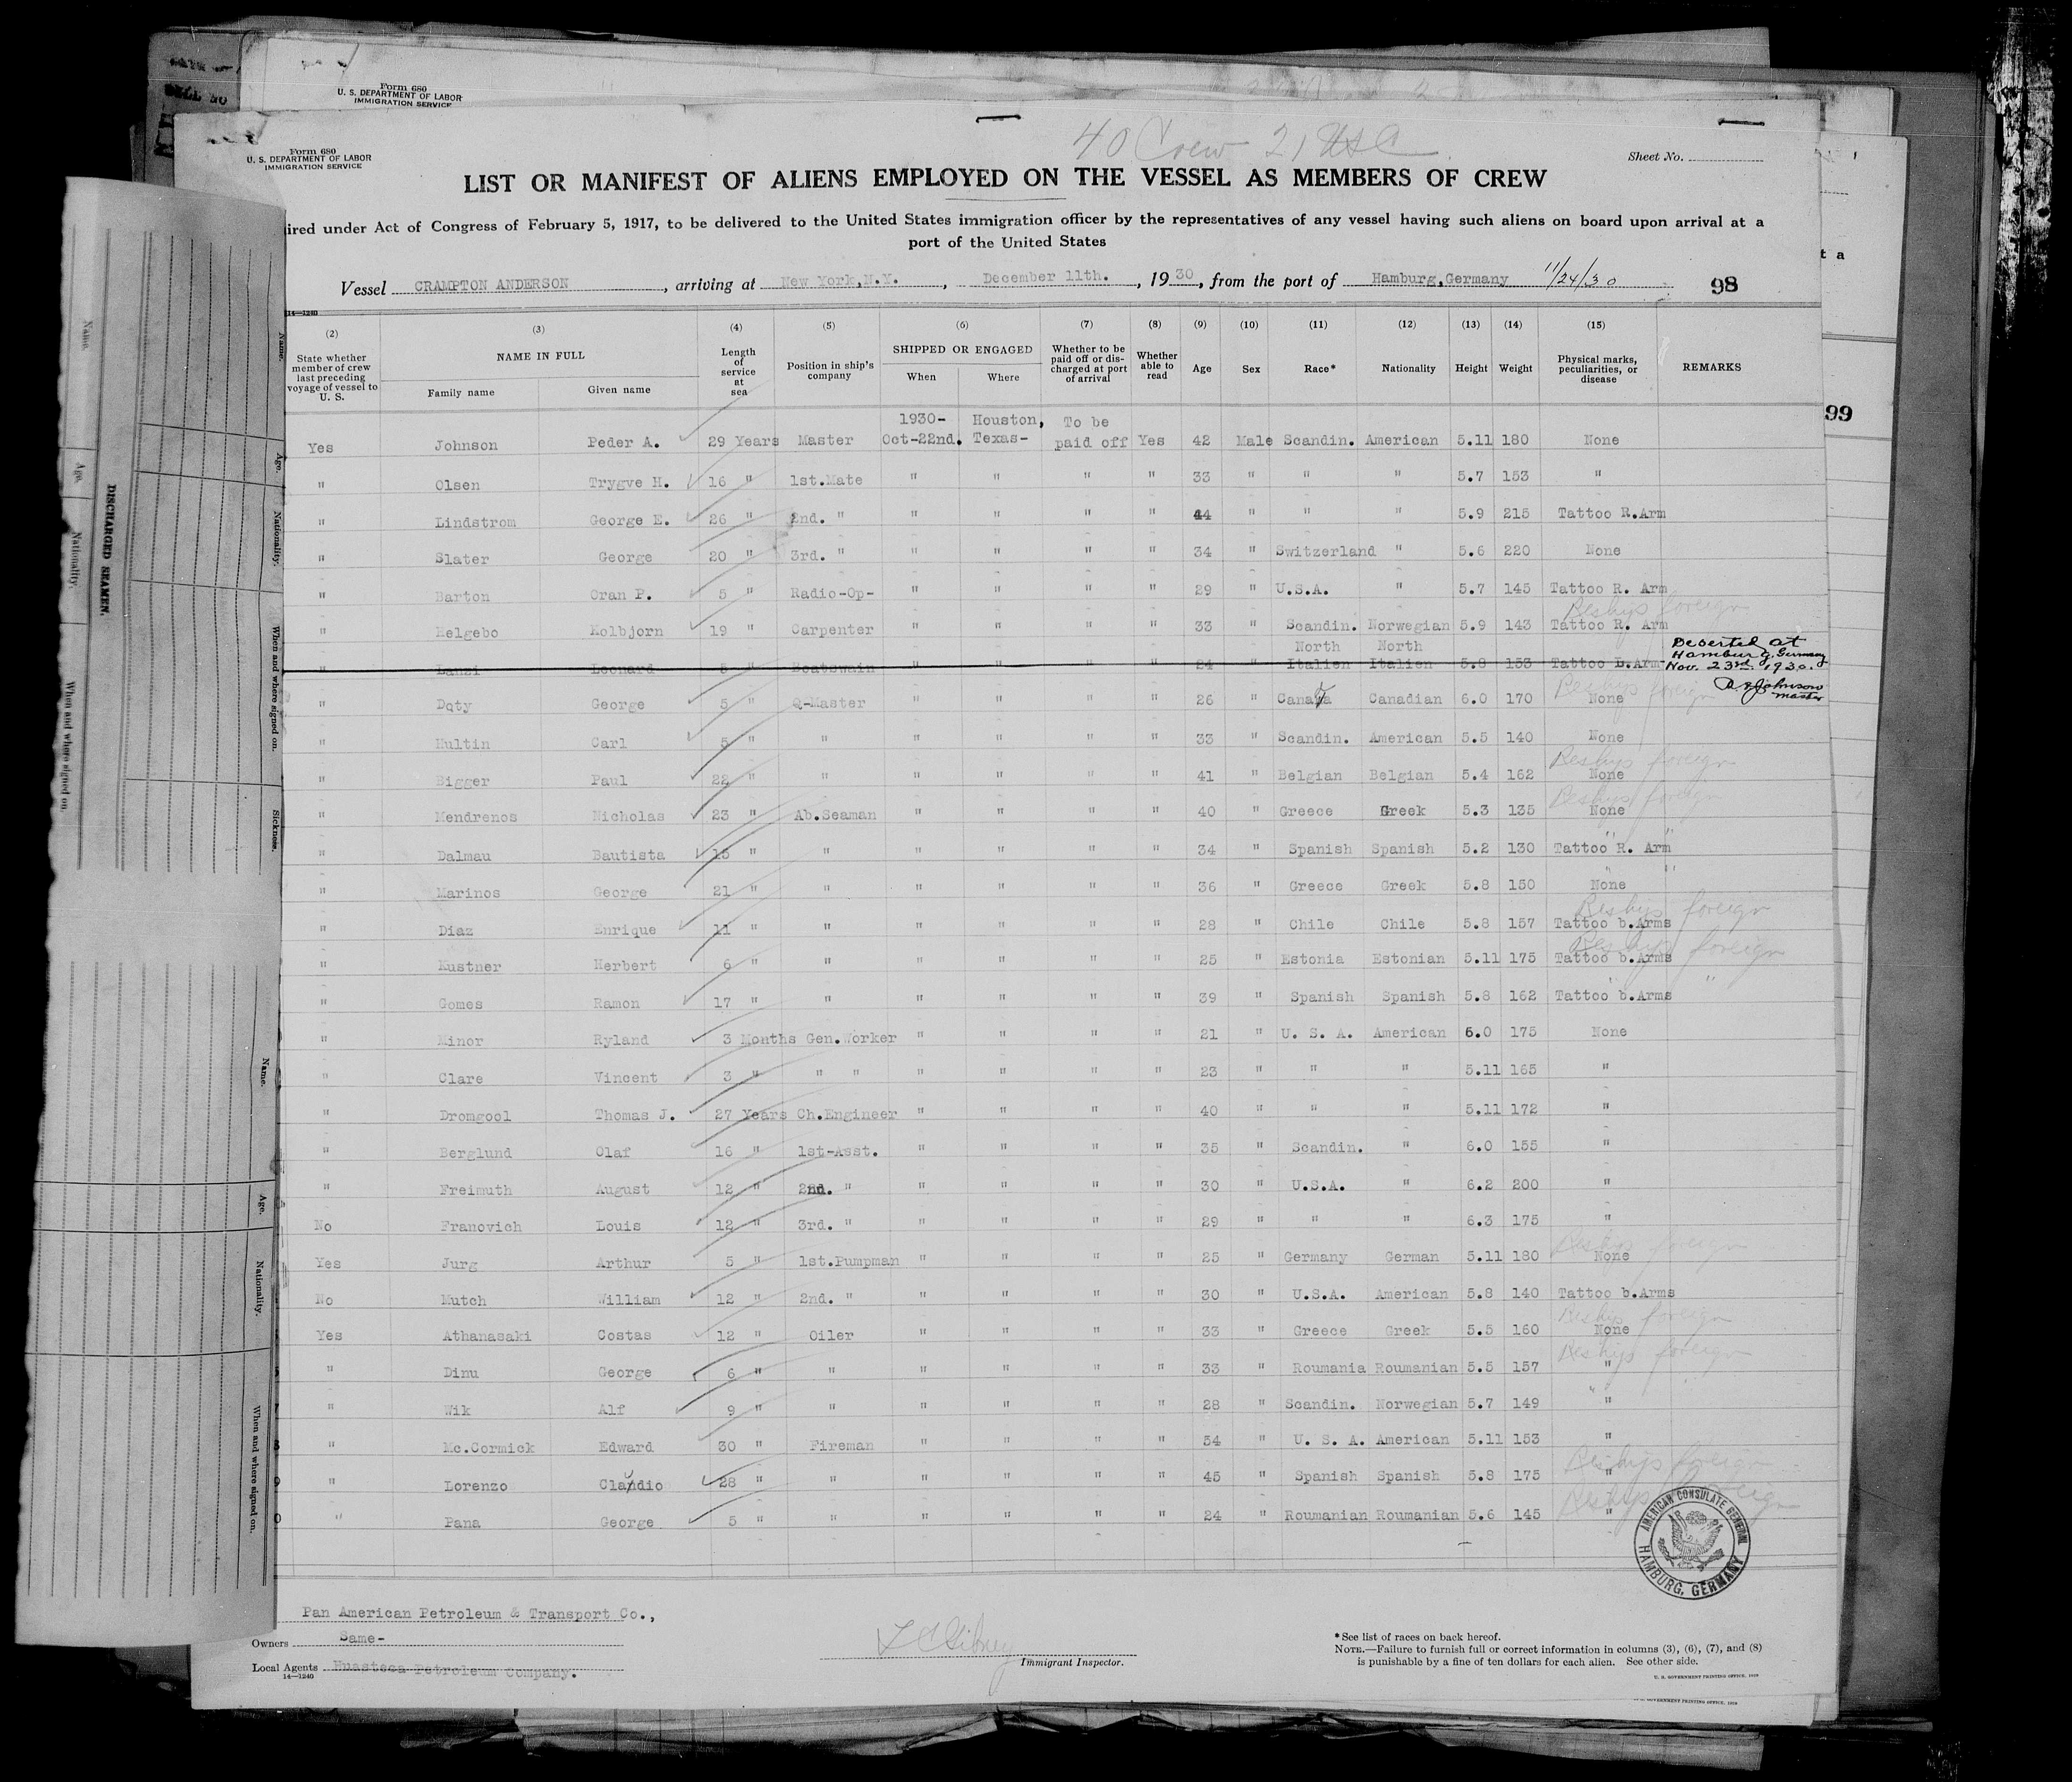 Form 680
U. S. DEPARTMENT OF LABOR
IMMIGRATION SERVICE
Form 680
U. S. DEPARTMENT OF LABOR
IMMIGRATION SERVICE
40 Crew 21 USC
Sheet No.
LIST OR MANIFEST OF ALIENS EMPLOYED ON THE VESSEL AS MEMBERS OF CREW
ired under Act of Congress of February 5, 1917, to be delivered to the United States immigration officer by the representatives of any vessel having such aliens on board upon arrival at a
port of the United States
Vessel CRAMPTON ANDERSON, arriving at New York,N.Y., December 11th., 1930, from the port of Hamburg,Germany 11/24/30 98
14—1240
(2) (3) (4) (5) (6) (7) (8) (9) (10) (11) (12) (13) (14) (15)
State whether member of crew last preceding voyage of vessel to U. S. NAME IN FULL Family name Given name Length of service at sea Position in ship's company SHIPPED OR ENGAGED When Where Whether to be paid off or discharged at port of arrival Whether able to read Age Sex Race* Nationality Height Weight Physical marks, peculiarities, or disease REMARKS
1930- Houston, To be
Yes Johnson Peder A. 29 Years Master Oct-22nd. Texas- paid off Yes 42 Male Scandin. American 5.11 180 None
" Olsen Trygve H. 16 " 1st.Mate " " " " 33 " " " 5.7 153 "
" Lindstrom George E. 26 " 2nd. " " " " " 44 " " " 5.9 215 Tattoo R.Arm
" Slater George 20 " 3rd. " " " " " 34 " Switzerland " 5.6 220 None
" Barton Oran P. 5 " Radio-Op- " " " " 29 " U.S.A. " 5.7 145 Tattoo R. Arm
Reships foreign
" Helgebo Kolbjorn 19 " Carpenter " " " " 33 " Scandin. Norwegian 5.9 143 Tattoo R. Arm
North North
" Lanzi Leonard 5 " Boatswain " " " " 24 " Italien Italien 5.8 153 Tattoo b.Arm Deserted at Hamburg, Germany Nov. 23rd. 1930. P. A. Johnson master
Reships foreign
" Doty George 5 " Q-Master " " " " 26 " Canada Canadian 6.0 170 None
" Hultin Carl 5 " " " " " " 33 " Scandin. American 5.5 140 None
Reships foreign
" Bigger Paul 22 " " " " " " 41 " Belgian Belgian 5.4 162 None
Reships foreign
" Mendrenos Nicholas 23 " Ab.Seaman " " " " 40 " Greece Greek 5.3 135 None
" "
" Dalmau Bautista 15 " " " " " " 34 " Spanish Spanish 5.2 130 Tattoo R. Arm
" "
" Marinos George 21 " " " " " " 36 " Greece Greek 5.8 150 None
Reships foreign
" Diaz Enrique 11 " " " " " " 28 " Chile Chile 5.8 157 Tattoo b.Arms
Reships foreign
" Kustner Herbert 6 " " " " " " 25 " Estonia Estonian 5.11 175 Tattoo b.Arms
" "
" Gomes Ramon 17 " " " " " " 39 " Spanish Spanish 5.8 162 Tattoo b.Arms
" Minor Ryland 3 Months Gen.Worker " " " " 21 " U. S. A. American 6.0 175 None
" Clare Vincent 3 " " " " " " " 23 " " " 5.11 165 "
" Dromgool Thomas J. 27 Years Ch.Engineer " " " " 40 " " " 5.11 172 "
" Berglund Olaf 16 " 1st-Asst. " " " " 35 " Scandin. " 6.0 155 "
" Freimuth August 12 " 2nd. " " " " " 30 " U.S.A. " 6.2 200 "
No Franovich Louis 12 " 3rd. " " " " " 29 " " " 6.3 175 "
Reships foreign
Yes Jurg Arthur 5 " 1st.Pumpman " " " " 25 " Germany German 5.11 180 None
No Mutch William 12 " 2nd. " " " " " 30 " U.S.A. American 5.8 140 Tattoo b.Arms
Reships foreign
Yes Athanasaki Costas 12 " Oiler " " " " 33 " Greece Greek 5.5 160 None
Reships foreign
" Dinu George 6 " " " " " " 33 " Roumania Roumanian 5.5 157 "
" "
" Wik Alf 9 " " " " " " 28 " Scandin. Norwegian 5.7 149 "
" Mc.Cormick Edward 30 " Fireman " " " " 54 " U. S. A. American 5.11 153 "
Reships foreign
" Lorenzo Claudio 28 " " " " " " 45 " Spanish Spanish 5.8 175 "
Reships foreign
" Pana George 5 " " " " " " 24 " Roumanian Roumanian 5.6 145 "
AMERICAN CONSULATE GENERAL
HAMBURG, GERMANY
Pan American Petroleum & Transport Co.,
Owners Same-
Local Agents Huasteca Petroleum Company.
14—1240
L C Gibney
Immigrant Inspector.
*See list of races on back hereof.
NOTE.—Failure to furnish full or correct information in columns (3), (6), (7), and (8)
is punishable by a fine of ten dollars for each alien. See other side.
U. S. GOVERNMENT PRINTING OFFICE, 1929
GOVERNMENT PRINTING OFFICE, 1929
t a
99
DISCHARGED SEAMEN.
Name.
Age.
Nationality.
When and where signed on.
Name.
Age.
Nationality.
When and where signed on.
Sickness.
Name.
Age.
Nationality.
When and where signed on.